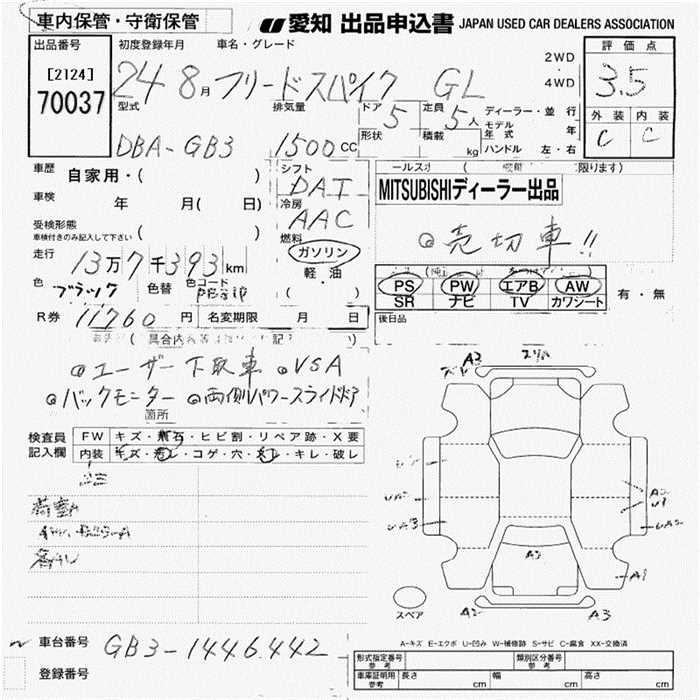 車内保管・守衛保管
愛知 出品申込書 JAPAN USED CAR DEALERS ASSOCIATION
出品番号
[2124]
70037
初度登録年月 車名・グレード
24 8月 フリードスパイク GL
2WD
4WD
評価点
3.5
外装 内装
C C
型式 排気量 ドア 定員
DBA-GB3 1500cc 5 5人
形状 積載 kg
ディーラー・並行
モデル年式 年
ハンドル 左・右
車歴 自家用・( )
車検 年 月( 日)
受検形態 ( )
車検付きのみ記入して下さい
走行 13万7千393km
色 ブラック 色替 色コード
R券 11760円 名変期限 月 日
シフト
DAT
冷房
AAC
燃料
ガソリン
軽・油
( )
MITSUBISHIディーラー出品
◎売切車!!
PS PW エアB AW
SR ナビ TV カワシート
有・無
後日品
◎ユーザー下取車 ◎VSA
◎バックモニター ◎両側パワースライドドア
箇所
検査員記入欄
FW キズ・飛石・ヒビ割・リペア跡・X要
内装 キズ・汚レ・コゲ・穴・スレ・キレ・破レ
A3
A2
U1
UA3
UA2
A1
A2
A2
A3
スペア
A-キズ E-エクボ U-凹み W-補修跡 S-サビ C-腐食 XX-交換済
車台番号 GB3-1446442
登録番号
形式指定番号 参考 類別区分番号 参考
車庫証明用 参考 長さ cm 幅 cm 高さ cm